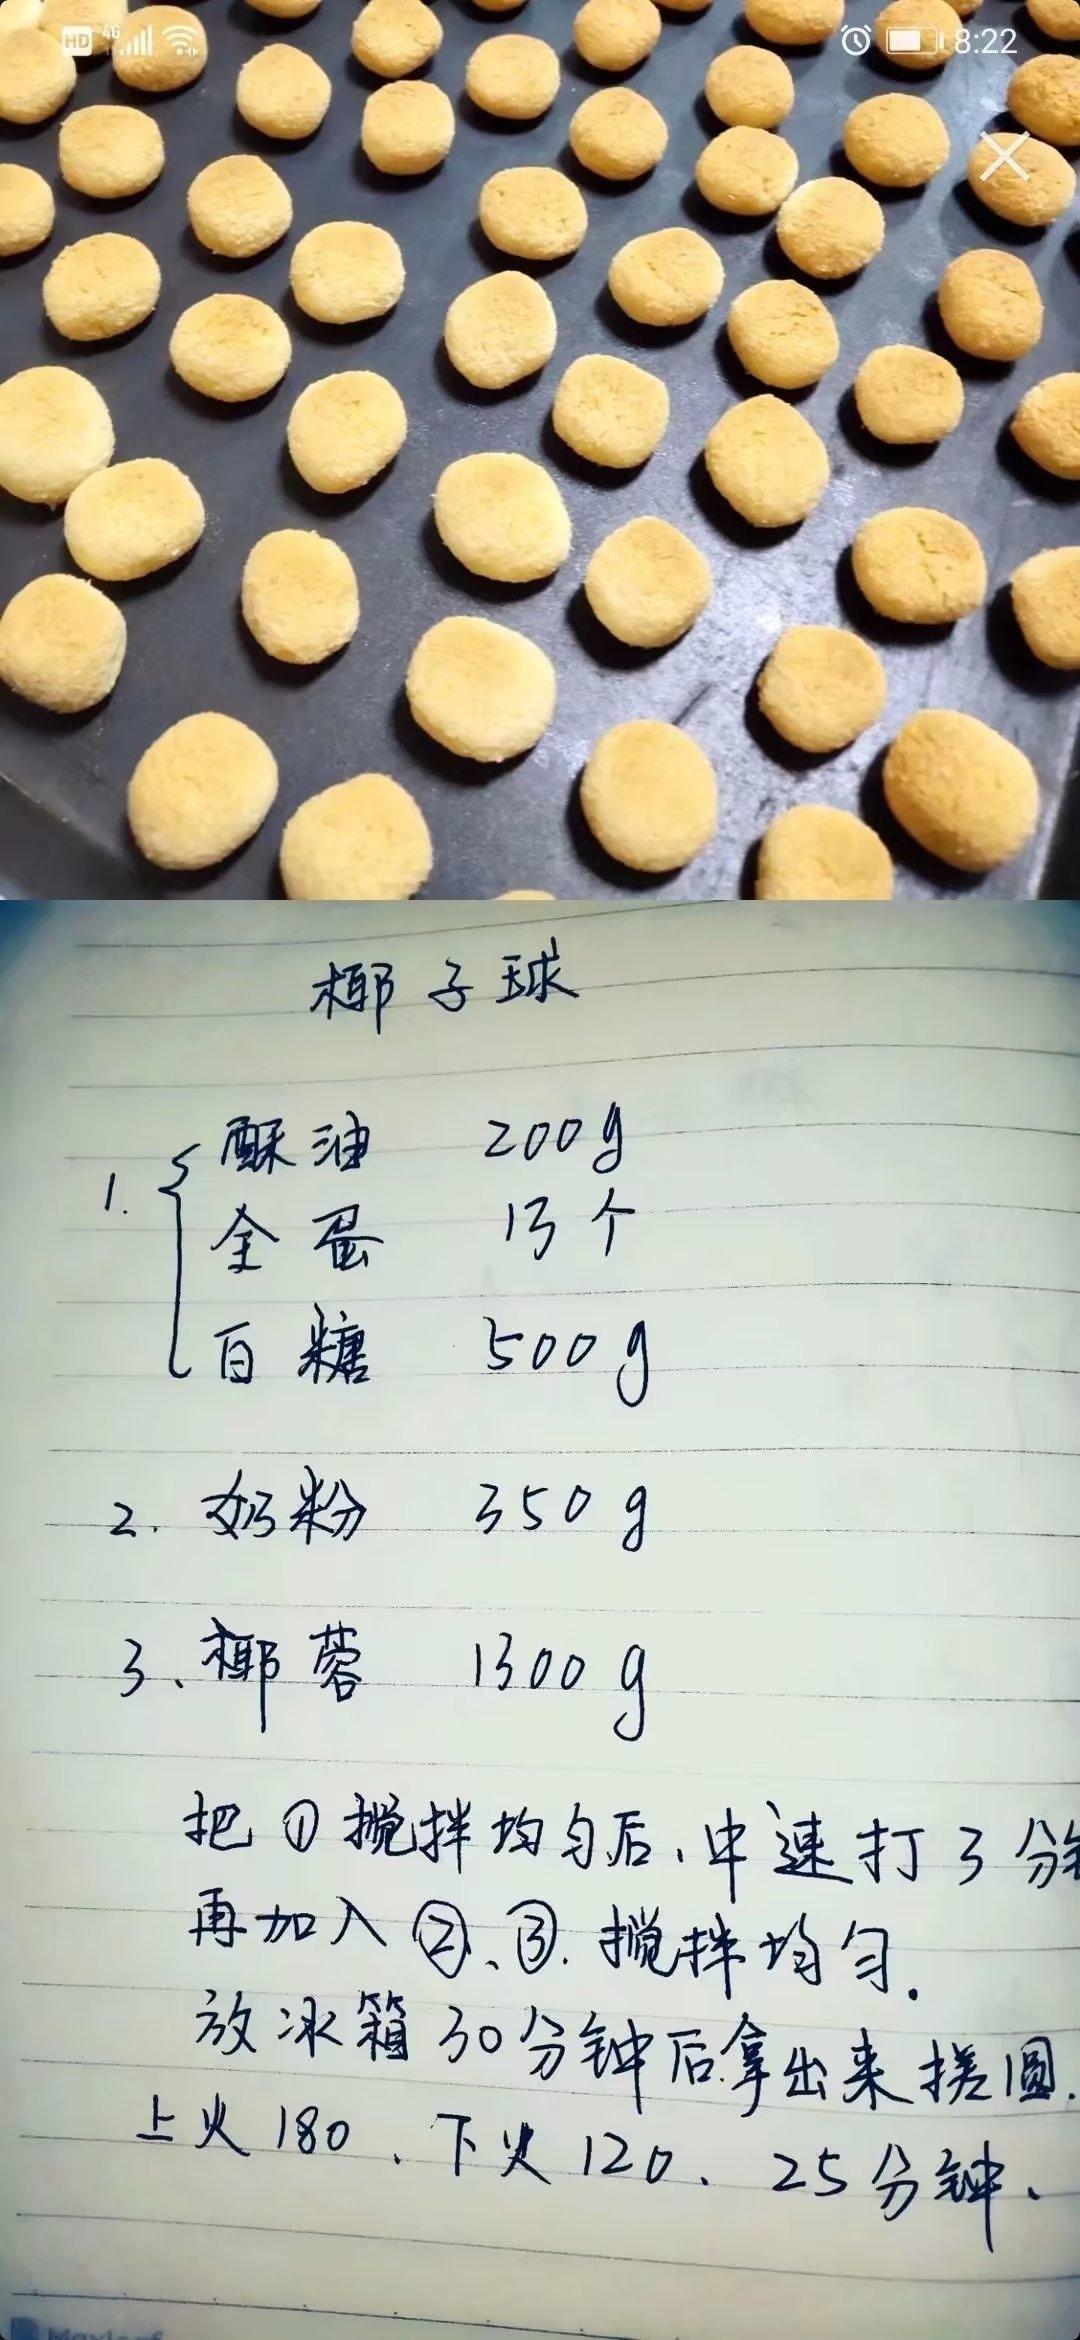 HD 4G 8:22
椰子球
1. 酥油 200g
全蛋 13个
白糖 500g
2. 奶粉 350g
3、椰蓉 1300g
把①搅拌均匀后、中速打3分钟
再加入②、③.搅拌均匀.
放冰箱30分钟后拿出来搓圆.
上火180、下火120、25分钟、